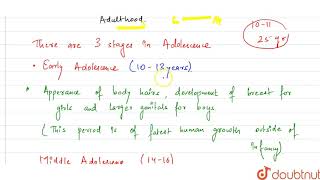 Adulthood
10-11
25 yr
There are 3 stages in Adolescence
• Early Adolescence (10-13 years)
• Apperance of body hairs, development of breast for
girls and larger genitals for boys
( This period is of fastest human growth outside of
Infancy)
Middle Adolescence (14-16)
doubtnut